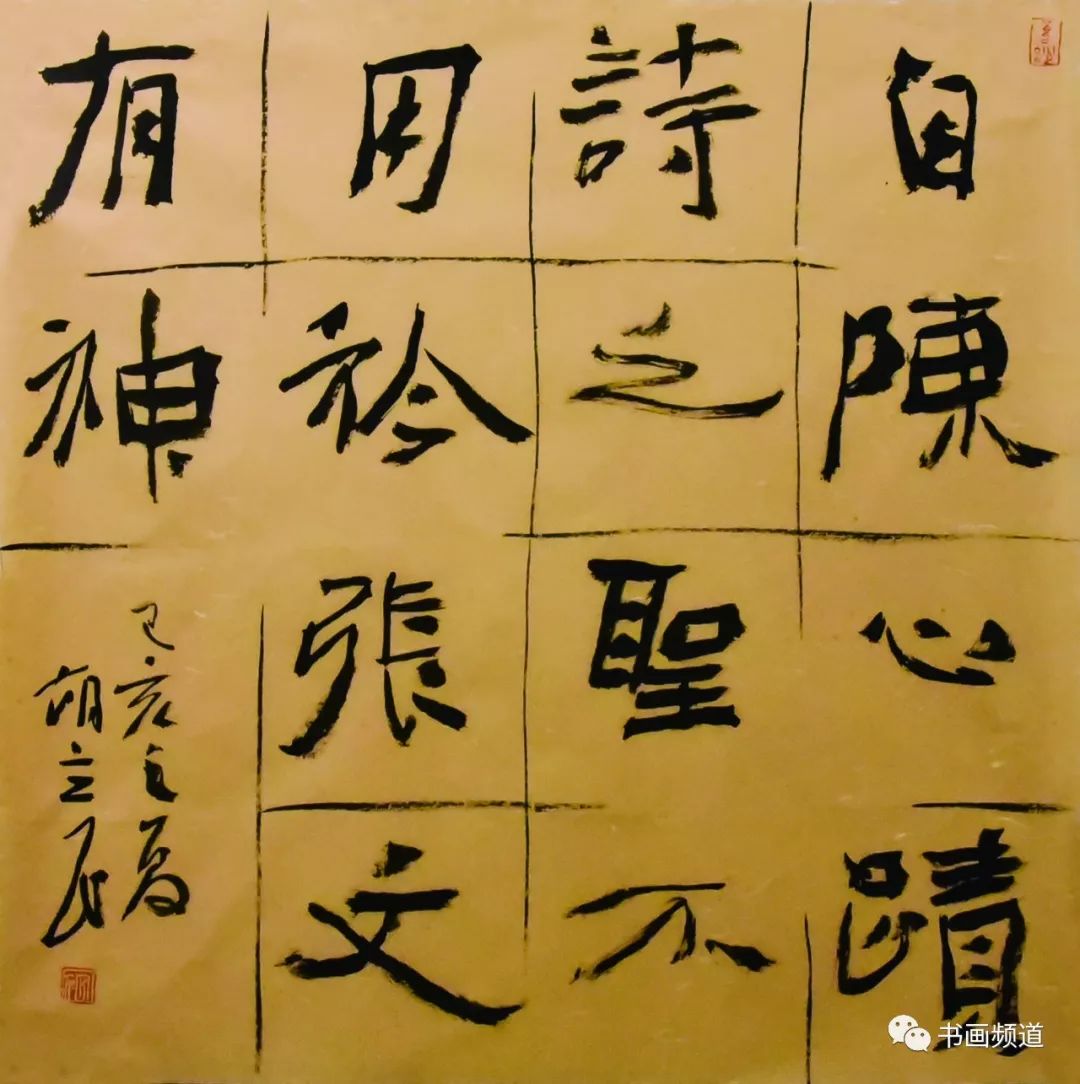 自陳心蹟
詩之聖不
用衿張文
有神
己亥之夏
胡立民
书画频道